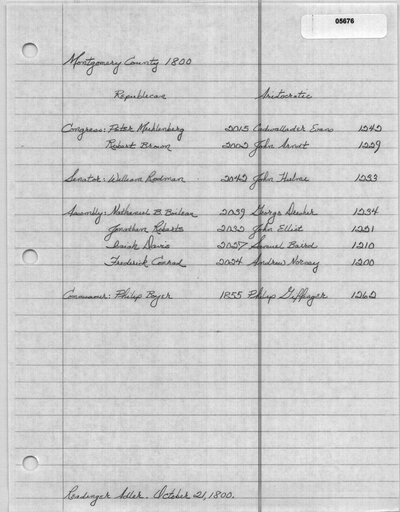 05676
Montgomery County 1800
Republican Aristocratic
Congress: Peter Muhlenberg 2015 Cadwallader Evans 1242
Robert Brown 2002 John Arndt 1229
Senator: William Rodman 2042 John Hulme 1233
Assembly: Nathaniel B. Boileau 2039 George Drucker 1234
Jonathan Roberts 2032 John Elliot 1231
Isaiah Davis 2027 Samuel 1210
Frederick Conrad 2024 Andrew 1200
Philip Boyer 1855 Philip 1262
Readinger Adler. October 21, 1800.